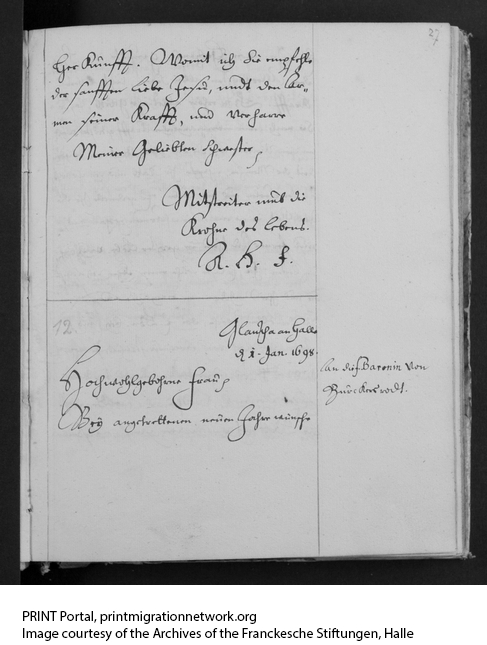 27
her Künfft. Womit ich Sie empfehle
der sanfften Liebe Jesu, undt den Ar-
men seiner Krafft, und verharre
Meiner Geliebten Schwester,
Mitstreiter umb die
Krohne des Lebens.
A. H. F.
12
Glaucha an Halle
d 1. Jan. 1698.
Hochwohlgebohrne Frau,
An die Baronin von
Bey angetrettenen neuen Jahre wünsche
PRINT Portal, printmigrationnetwork.org
Image courtesy of the Archives of the Franckesche Stiftungen, Halle